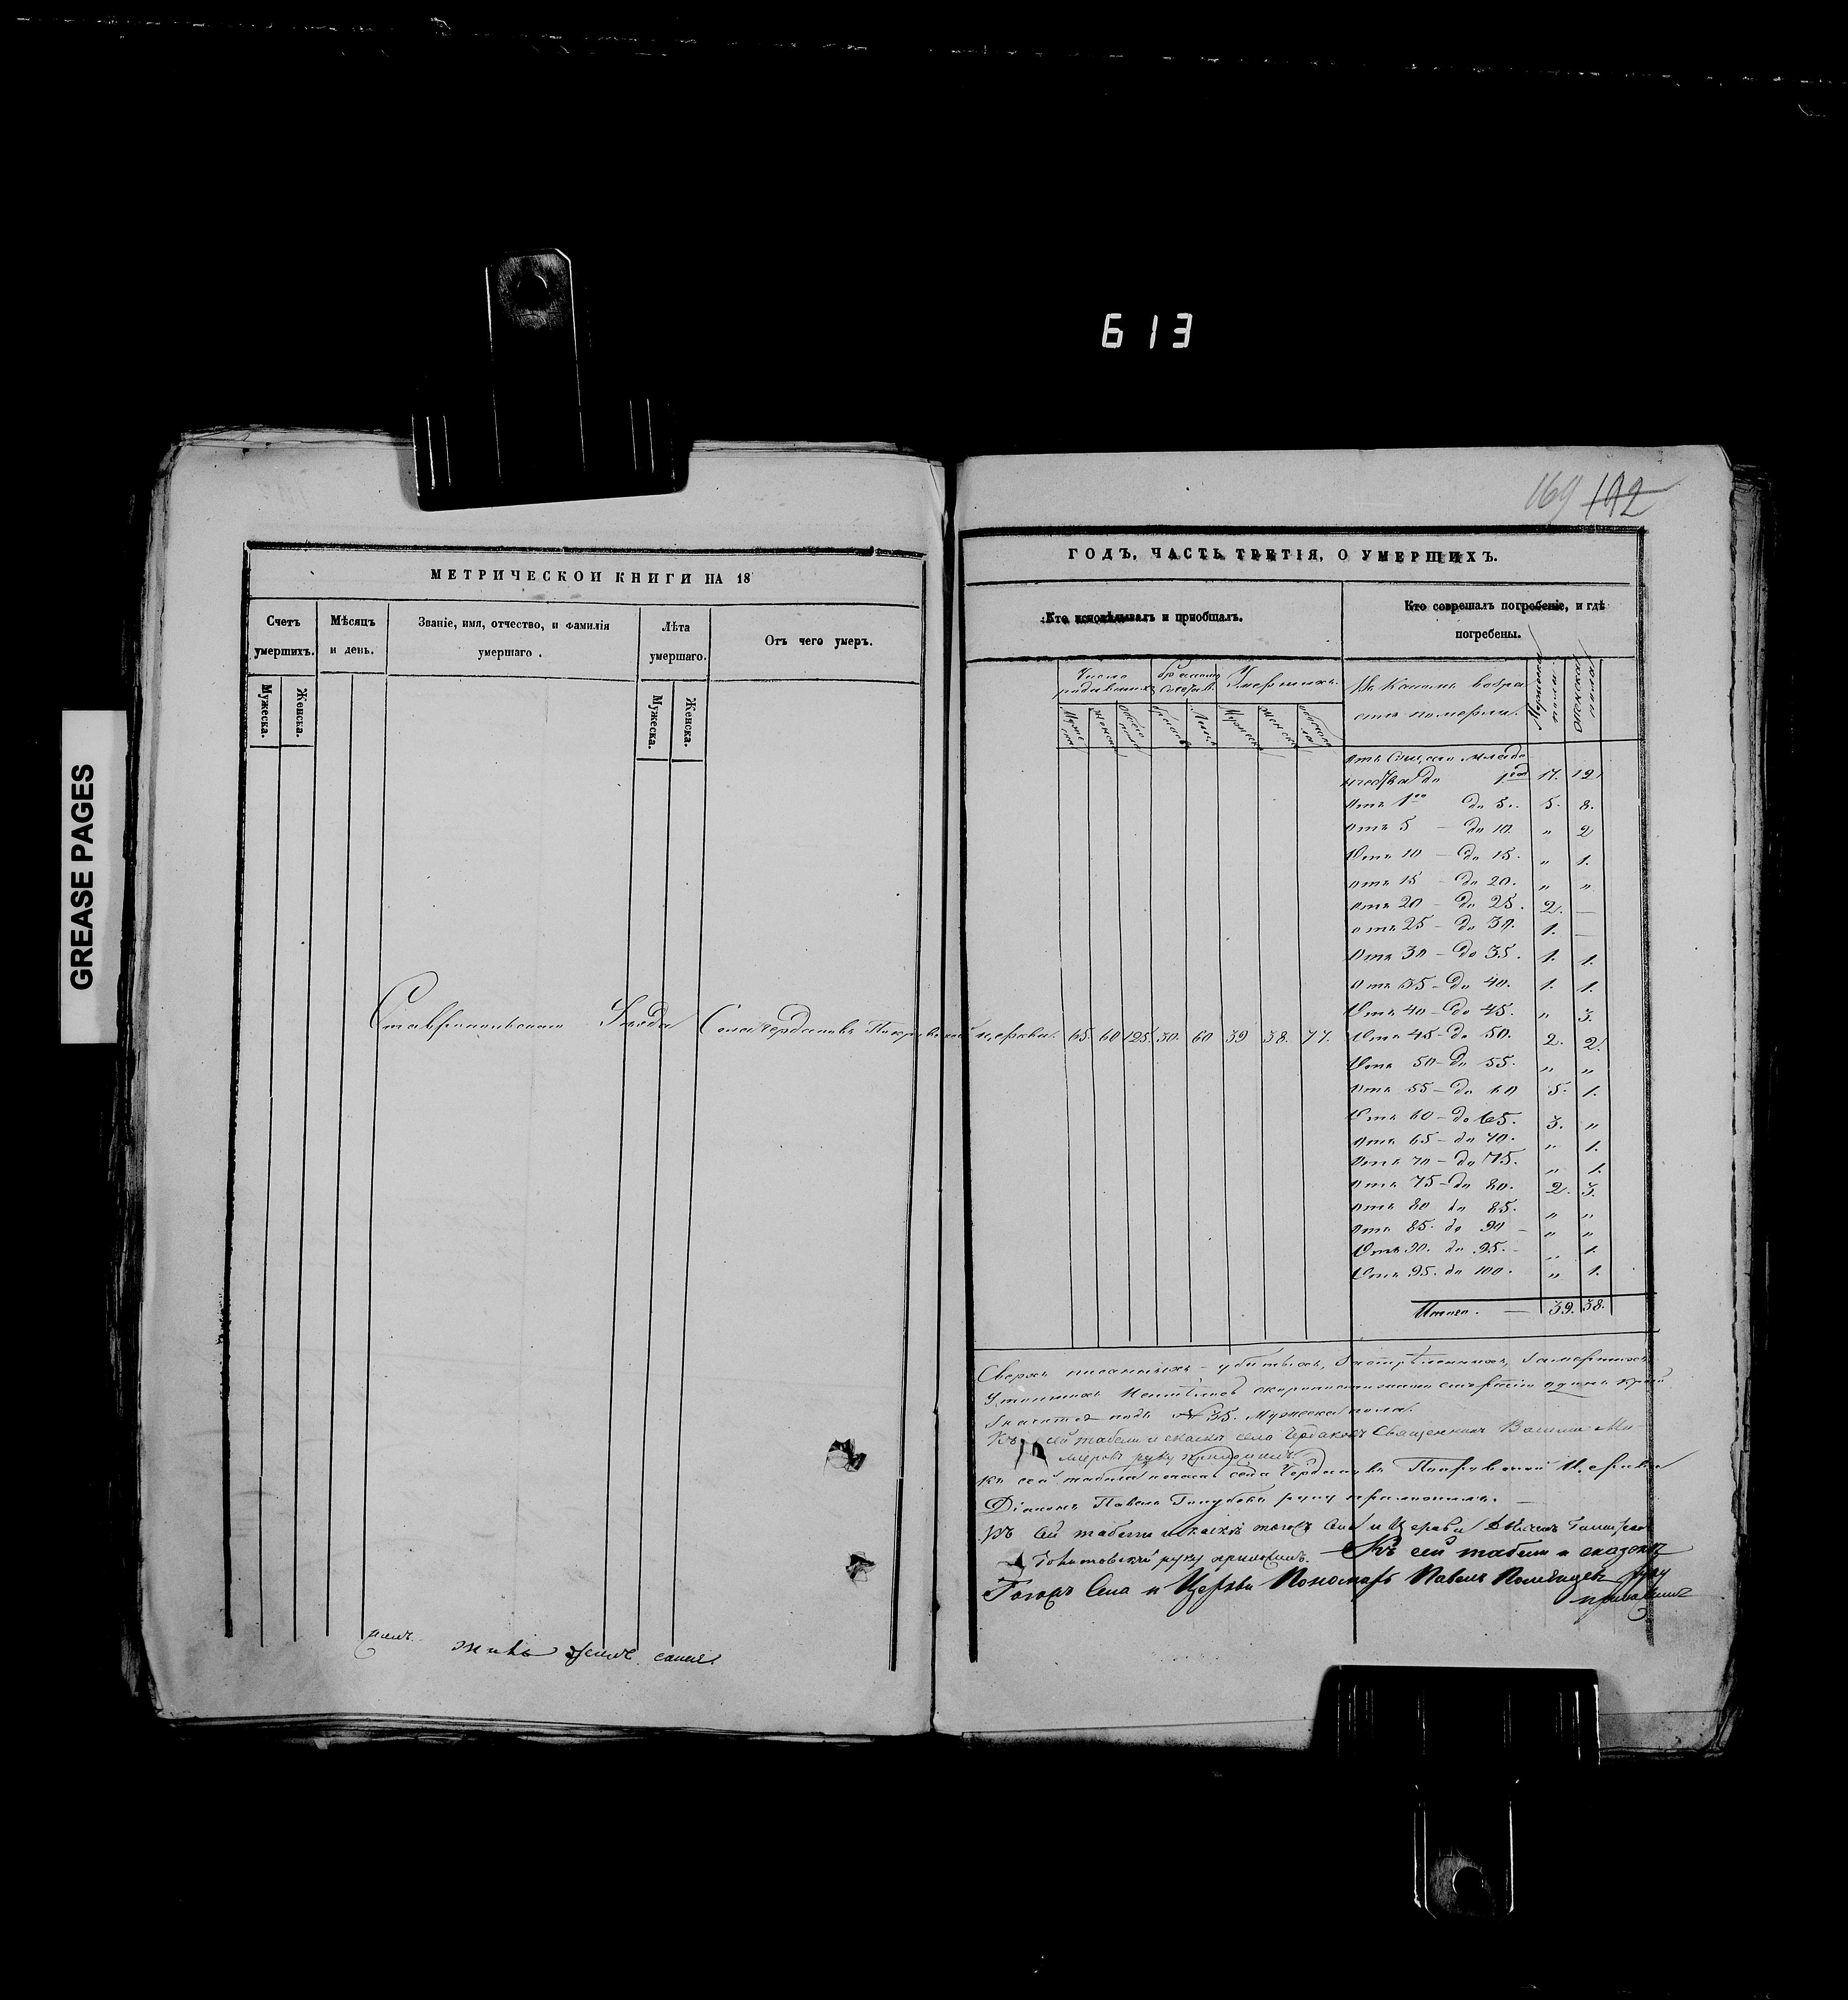 613
GREASE PAGES
169 192
МЕТРИЧЕСКОЙ КНИГИ НА 18
Счетъ умершихъ.
Мужеска.
Женска.
Мѣсяцъ и день.
Званіе, имя, отчество, и фамилія умершаго.
Лѣта умершаго.
Мужеска.
Женска.
Отъ чего умеръ.
ГОДЪ, ЧАСТЬ ТРЕТІЯ, О УМЕРШИХЪ.
Кто исповѣдывалъ и пріобщалъ.
Кто соврешалъ погребеніе, и гдѣ погребены.
Число родившихся
браковъ
Умершихъ.
Въ какомъ возра
стѣ померли.
Мужеска пола.
Женска пола
Отъ младе
нчества до 1 год 17. 12
Отъ 1го до 5. 5. 8.
Отъ 5 — до 10. „ 2
Отъ 10 — до 15. „ 1.
Отъ 15 — до 20. „ „
Отъ 20 — до 25. 2. —
Отъ 25 — до 30. 1. —
Отъ 30 — до 35. 1. 1.
Отъ 35 — до 40. 1. 1.
Отъ 40 — до 45. „ 3.
Ставропольскаго Уѣзда Села Чердаковъ Покровской церкви. 65. 60 125. 30. 60 39 38. 77.
Отъ 45 — до 50. 2. 2.
Отъ 50 — до 55. „ „
Отъ 55 — до 60 5. 1.
Отъ 60 — до 65. 3. „
Отъ 65 — до 70. „ 1.
Отъ 70 — до 75. „ 1.
Отъ 75 — до 80. 2. 3.
Отъ 80 до 85. „ „
Отъ 85. до 90 — „ „
Отъ 90. до 95. — „ 1.
Отъ 95. до 100. „ 1.
Итого. — 39. 38.
Сверхъ писанныхъ — убитыхъ, застрѣленныхъ, замерзшихъ
скоропостижною смертію одинъ
значится подъ № 35. Мужеска пола.
Къ сей табели и сказкѣ села Чердаковъ Священникъ
руку приложилъ.
Къ сей табели села Чердаковъ Покровской Церкви
Діаконъ Павелъ Голубевъ руку приложилъ. —
Къ сей табели и сказкѣ тогожъ Села и Церкви Дьячекъ
руку приложилъ. — Къ сей табели и сказкѣ
Тогожъ Села и Церкви Пономарь Павелъ руку
приложилъ